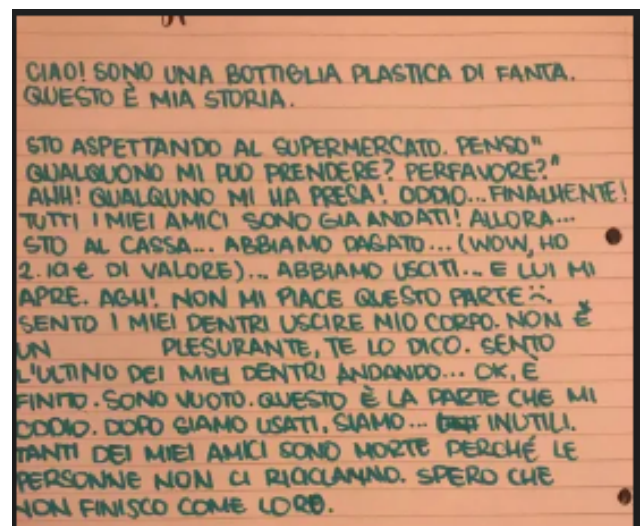 CIAO! SONO UNA BOTTIGLIA PLASTICA DI FANTA.
QUESTO È MIA STORIA.
STO ASPETTANDO AL SUPERMERCATO. PENSO "
QUALQUONO MI PUO PRENDERE? PERFAVORE?"
AHH! QUALQUNO MI HA PRESA! ODDIO... FINALMENTE!
TUTTI I MIEI AMICI SONO GIA ANDATI! ALLORA...
STO AL CASSA... ABBIAMO PAGATO... (WOW, HO
2.10€ DI VALORE)... ABBIAMO USCITI... E LUI MI
APRE. AGH! NON MI PIACE QUESTO PARTE
SENTO I MIEI DENTRI USCIRE MIO CORPO. NON È
UN PLESURANTE, TE LO DICO. SENTO
L'ULTIMO DEI MIEI DENTRI ANDANDO... OK, È
FINITO. SONO VUOTO. QUESTO È LA PARTE CHE MI
ODDIO. DOPO SIAMO USATI, SIAMO... INUTILI.
TANTI DEI MIEI AMICI SONO MORTE PERCHÉ LE
PERSONNE NON CI RICICLANNO. SPERO CHE
NON FINISCO COME LORO.